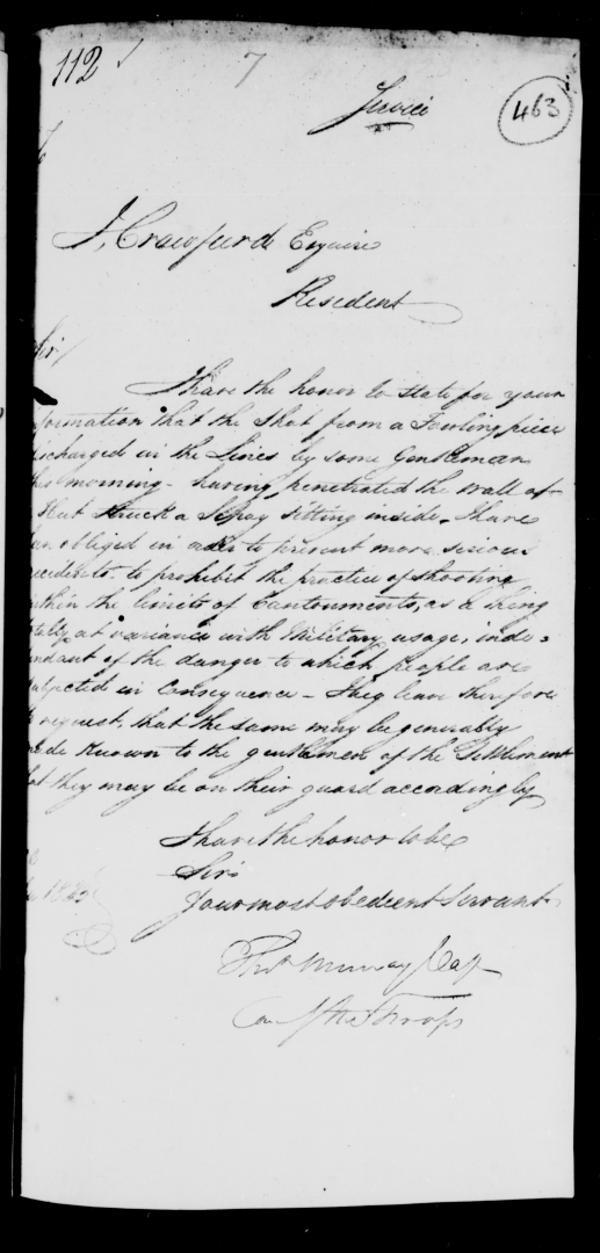 112
7
Service
463
To
J, Crawfurd Esquire
Resident
Sir/
I have the honor to state for your
formation that the Shot from a Fowling piece
ischarged in the Lines by some Gentleman
his morning - having penetrated the wall of
Hut struck a Sepoy sitting inside. I have
en obliged in order to prevent more serious
ccidents. to prohibit the practice of shooting
ithin the limits of Cantonments, as a thing
tally at variance with Military usage, inde=
endant of the danger to which people are
ubjected in Consequence - I beg leave therefore
to request, that the same may be generally
ade Known to the gentlemen of the Settlement
at they may be on their guard accordingly
I have the honor to be
Sir
Your most obedient Servant
Murray Cap
Com the Troops